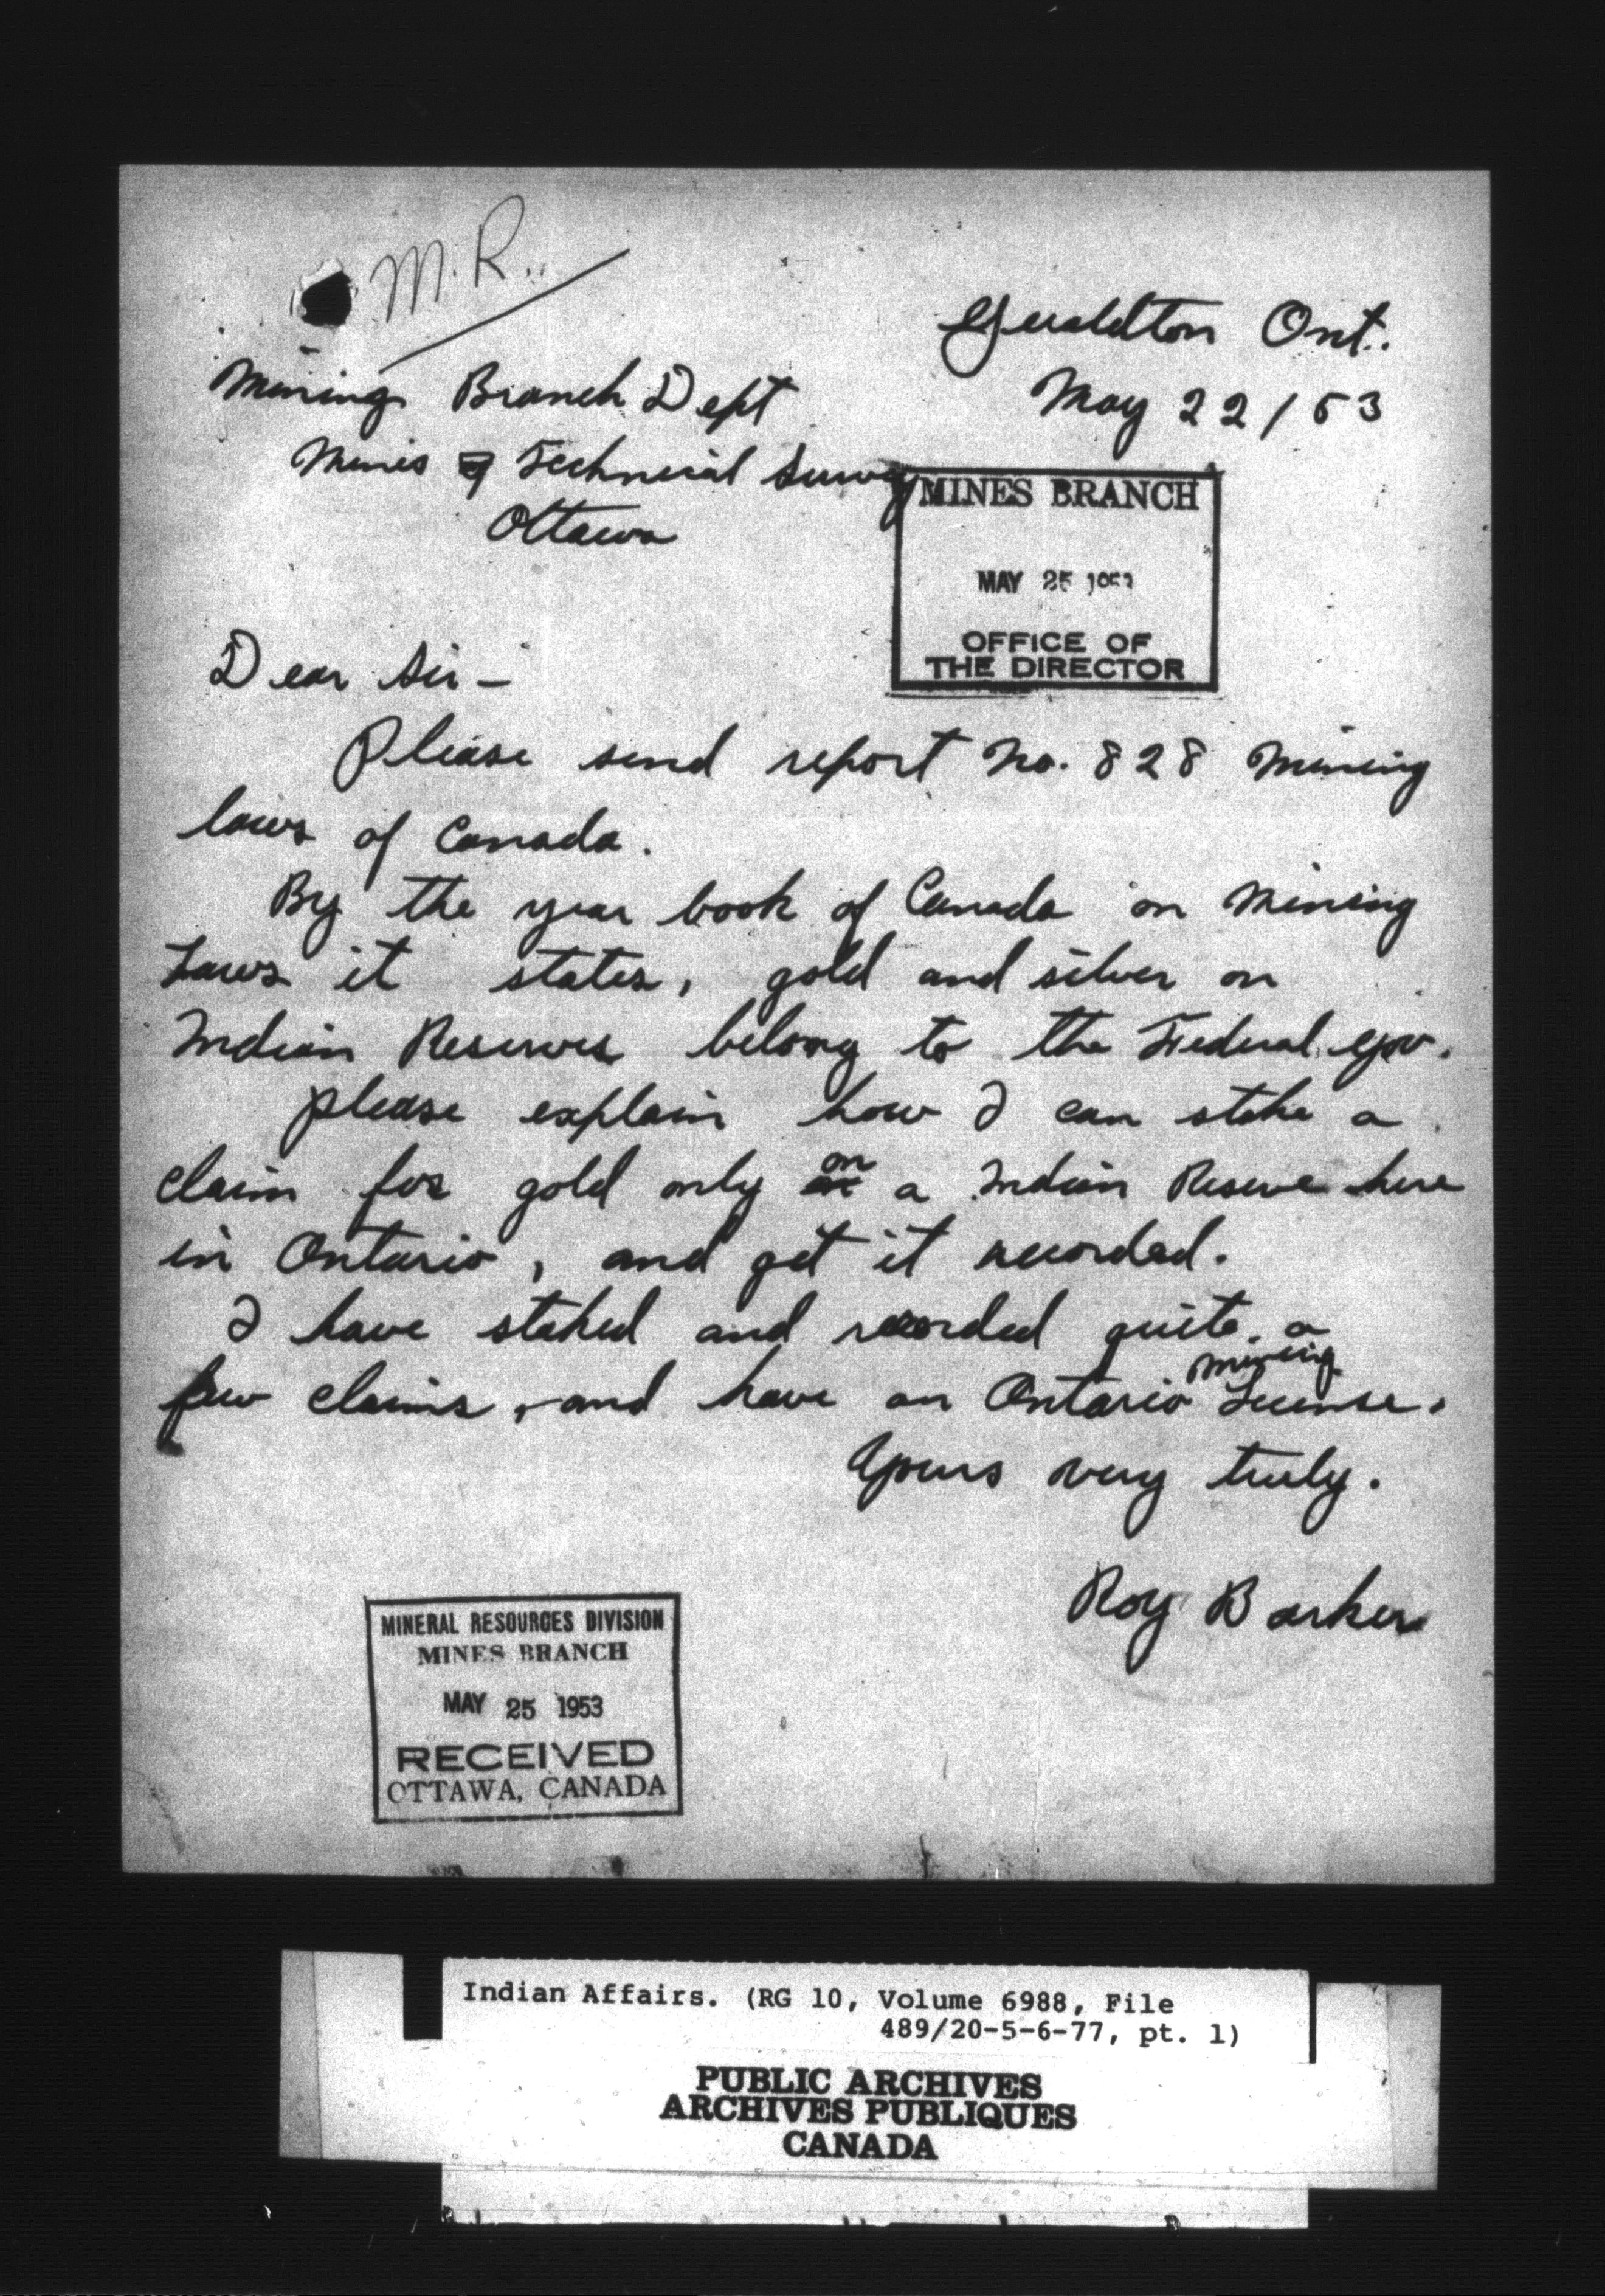 M.R.
Geraldton Ont.
May 22/53
Mining Branch Dept
Mines & Technical Survey
Ottawa
MINES BRANCH
MAY 25 1953
OFFICE OF
THE DIRECTOR
Dear Sir –
Please send report No. 828 Mining
laws of Canada.
By the year book of Canada on Mining
Laws it states, gold and silver on
Indian Reserves belong to the Federal gov.
please explain how I can stake a
claim for gold only on a Indian Reserve here
in Ontario, and get it recorded.
I have staked and recorded quite a
few claims, and have an Ontario mining License.
Yours very truly.
Roy Barker
MINERAL RESOURCES DIVISION
MINES BRANCH
MAY 25 1953
RECEIVED
OTTAWA, CANADA
Indian Affairs. (RG 10, Volume 6988, File
489/20-5-6-77, pt. 1)
PUBLIC ARCHIVES
ARCHIVES PUBLIQUES
CANADA